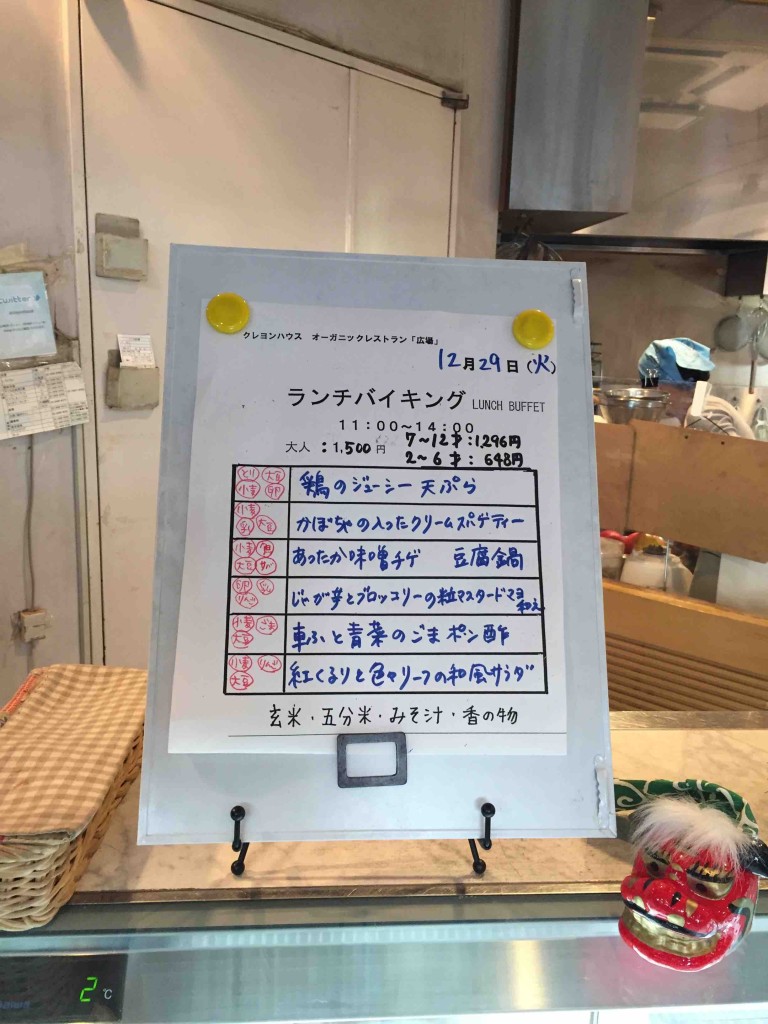 クレヨンハウス オーガニックレストラン「広場」
12月29日(火)
ランチバイキング LUNCH BUFFET
11:00～14:00
大人 : 1,500円
7～12才:1,296円
2～6才: 648円
とり 大豆 小麦 卵 鶏のジューシー天ぷら
小麦 乳 大豆 かぼちゃの入ったクリームスパゲティー
小麦 大豆 あったか味噌チゲ 豆腐鍋
卵 りんご じゃが芋とブロッコリーの粒マスタードマヨ和え
小麦 ごま 大豆 車ふと青菜のごまポン酢
小麦 りんご 大豆 紅くるりと色々リーフの和風サラダ
玄米・五分米・みそ汁・香の物
twitter
2℃